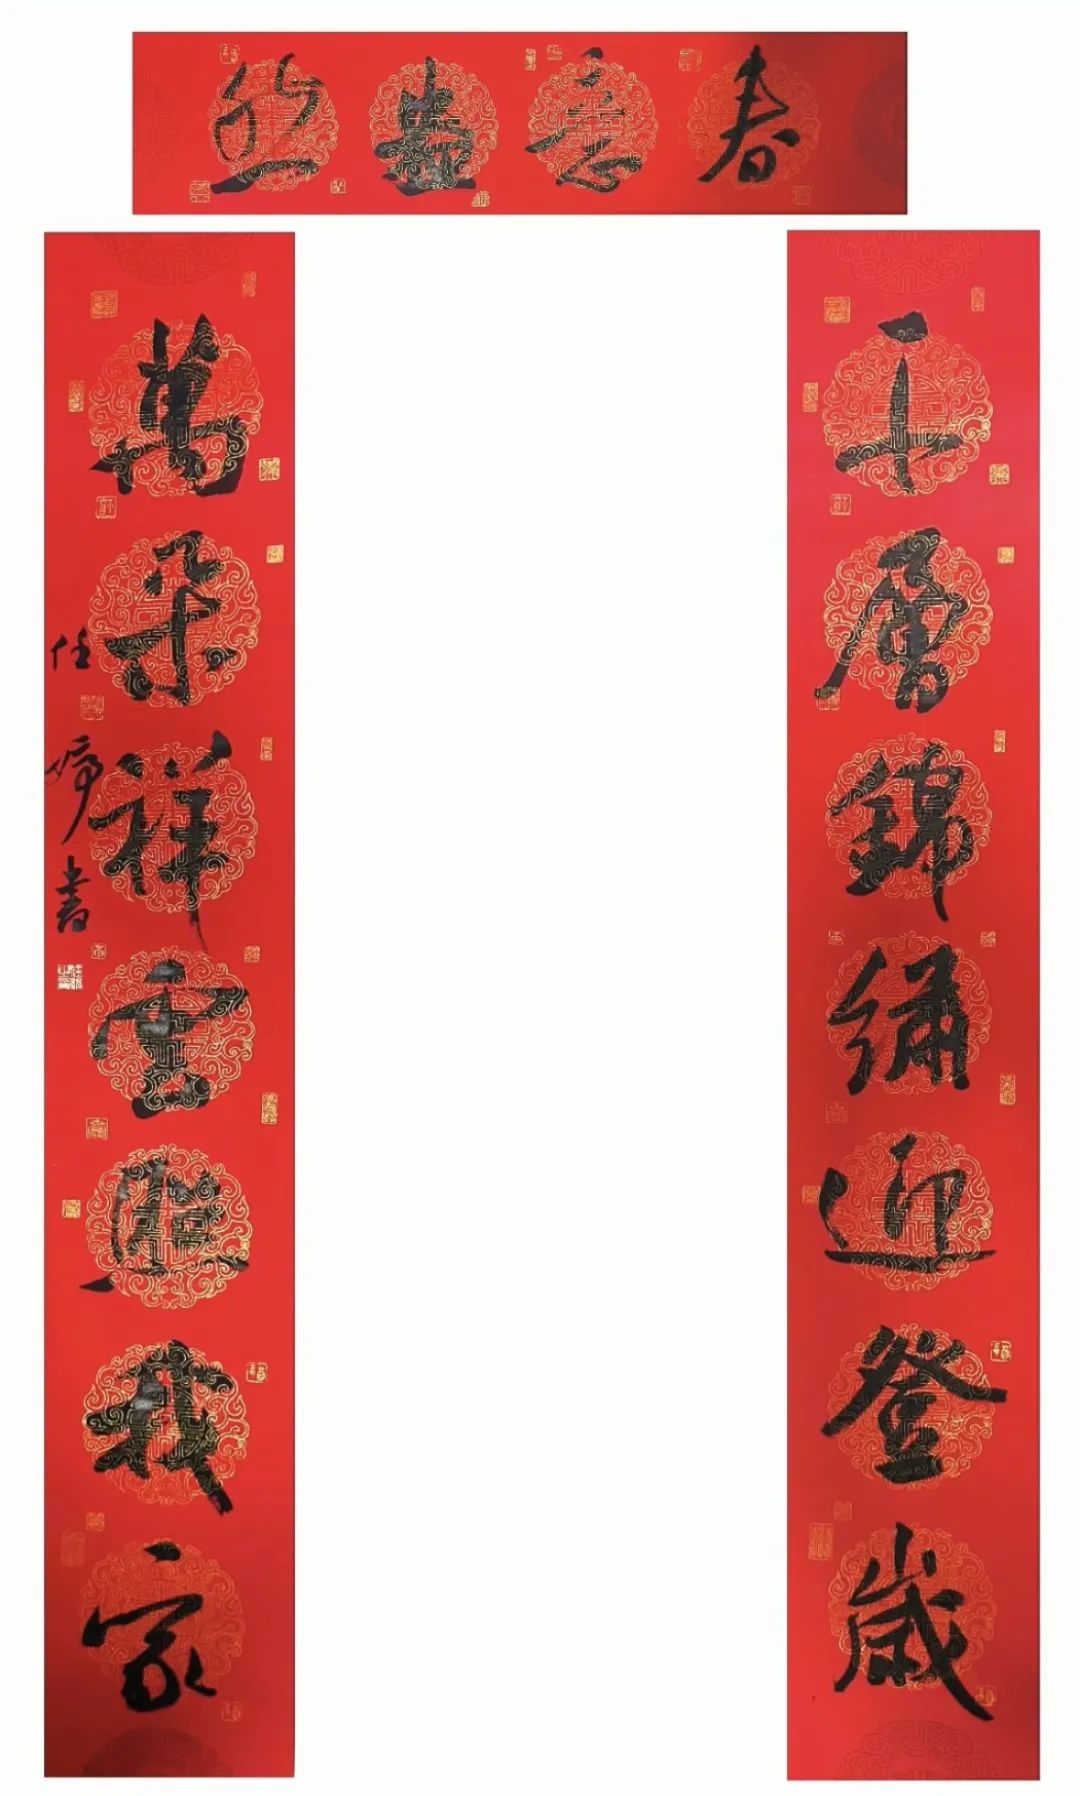 春意盎然
千層錦繡迎登歲
萬朵祥雲興我家
任婷書